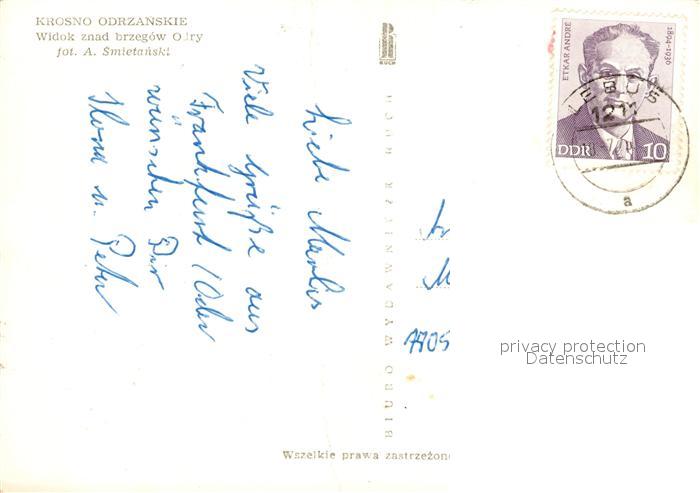 KROSNO ODRZAŃSKIE
Widok znad brzegów Odry
fot. A. Śmietański
RUCH
Liebe Marlis
Viele Grüße aus
Frankfurt / Oder
wünschen Dir
Ilona u. Peter
BIURO WYDAWNICZE RUCH
7705
Wszelkie prawa zastrzeżone
ETKAR ANDRÉ
1894-1936
DDR 10
LEBUS
1211
a
privacy protection
Datenschutz